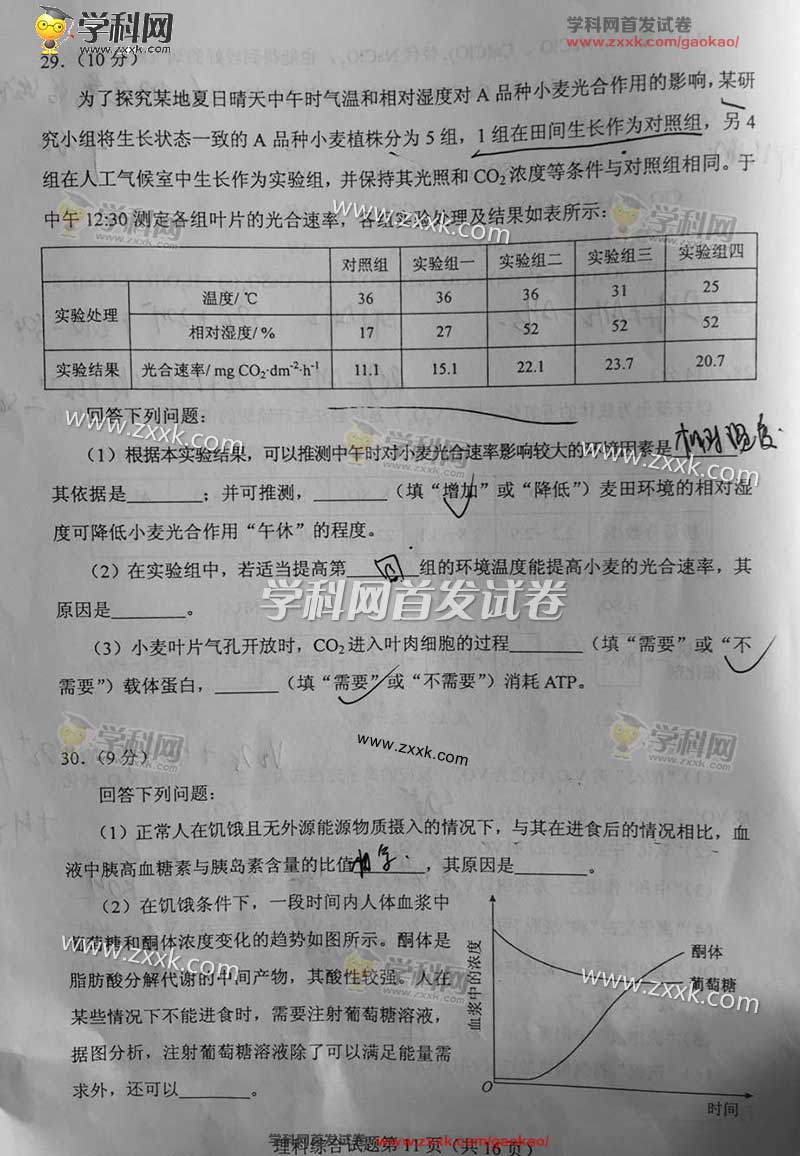 学科网
www.zxxk.com
学科网首发试卷
www.zxxk.com/gaokao/
29.（10 分）
为了探究某地夏日晴天中午时气温和相对湿度对 A 品种小麦光合作用的影响，某研
究小组将生长状态一致的 A 品种小麦植株分为 5 组，1 组在田间生长作为对照组，另 4
组在人工气候室中生长作为实验组，并保持其光照和 CO₂ 浓度等条件与对照组相同。于
中午 12:30 测定各组叶片的光合速率，各组实验处理及结果如表所示：
对照组 实验组一 实验组二 实验组三 实验组四
实验处理 温度/ ℃ 36 36 36 31 25
相对湿度/ % 17 27 52 52 52
实验结果 光合速率/ mg CO₂·dm⁻²·h⁻¹ 11.1 15.1 22.1 23.7 20.7
回答下列问题：
（1）根据本实验结果，可以推测中午时对小麦光合速率影响较大的环境因素是 相对湿度，
其依据是________；并可推测，________（填“增加”或“降低”）麦田环境的相对湿
度可降低小麦光合作用“午休”的程度。
（2）在实验组中，若适当提高第________组的环境温度能提高小麦的光合速率，其
原因是________。
学科网首发试卷
（3）小麦叶片气孔开放时，CO₂ 进入叶肉细胞的过程________（填“需要”或“不
需要”）载体蛋白，________（填“需要”或“不需要”）消耗 ATP。
学科网
www.zxxk.com
30.（9 分）
回答下列问题：
（1）正常人在饥饿且无外源能源物质摄入的情况下，与其在进食后的情况相比，血
液中胰高血糖素与胰岛素含量的比值________，其原因是________。
（2）在饥饿条件下，一段时间内人体血浆中
葡萄糖和酮体浓度变化的趋势如图所示。酮体是
脂肪酸分解代谢的中间产物，其酸性较强。人在
某些情况下不能进食时，需要注射葡萄糖溶液，
据图分析，注射葡萄糖溶液除了可以满足能量需
求外，还可以________。
血浆中的浓度
酮体
葡萄糖
O
时间
学科网首发试卷 www.zxxk.com/gaokao/
理科综合试题第 11 页（共 16 页）